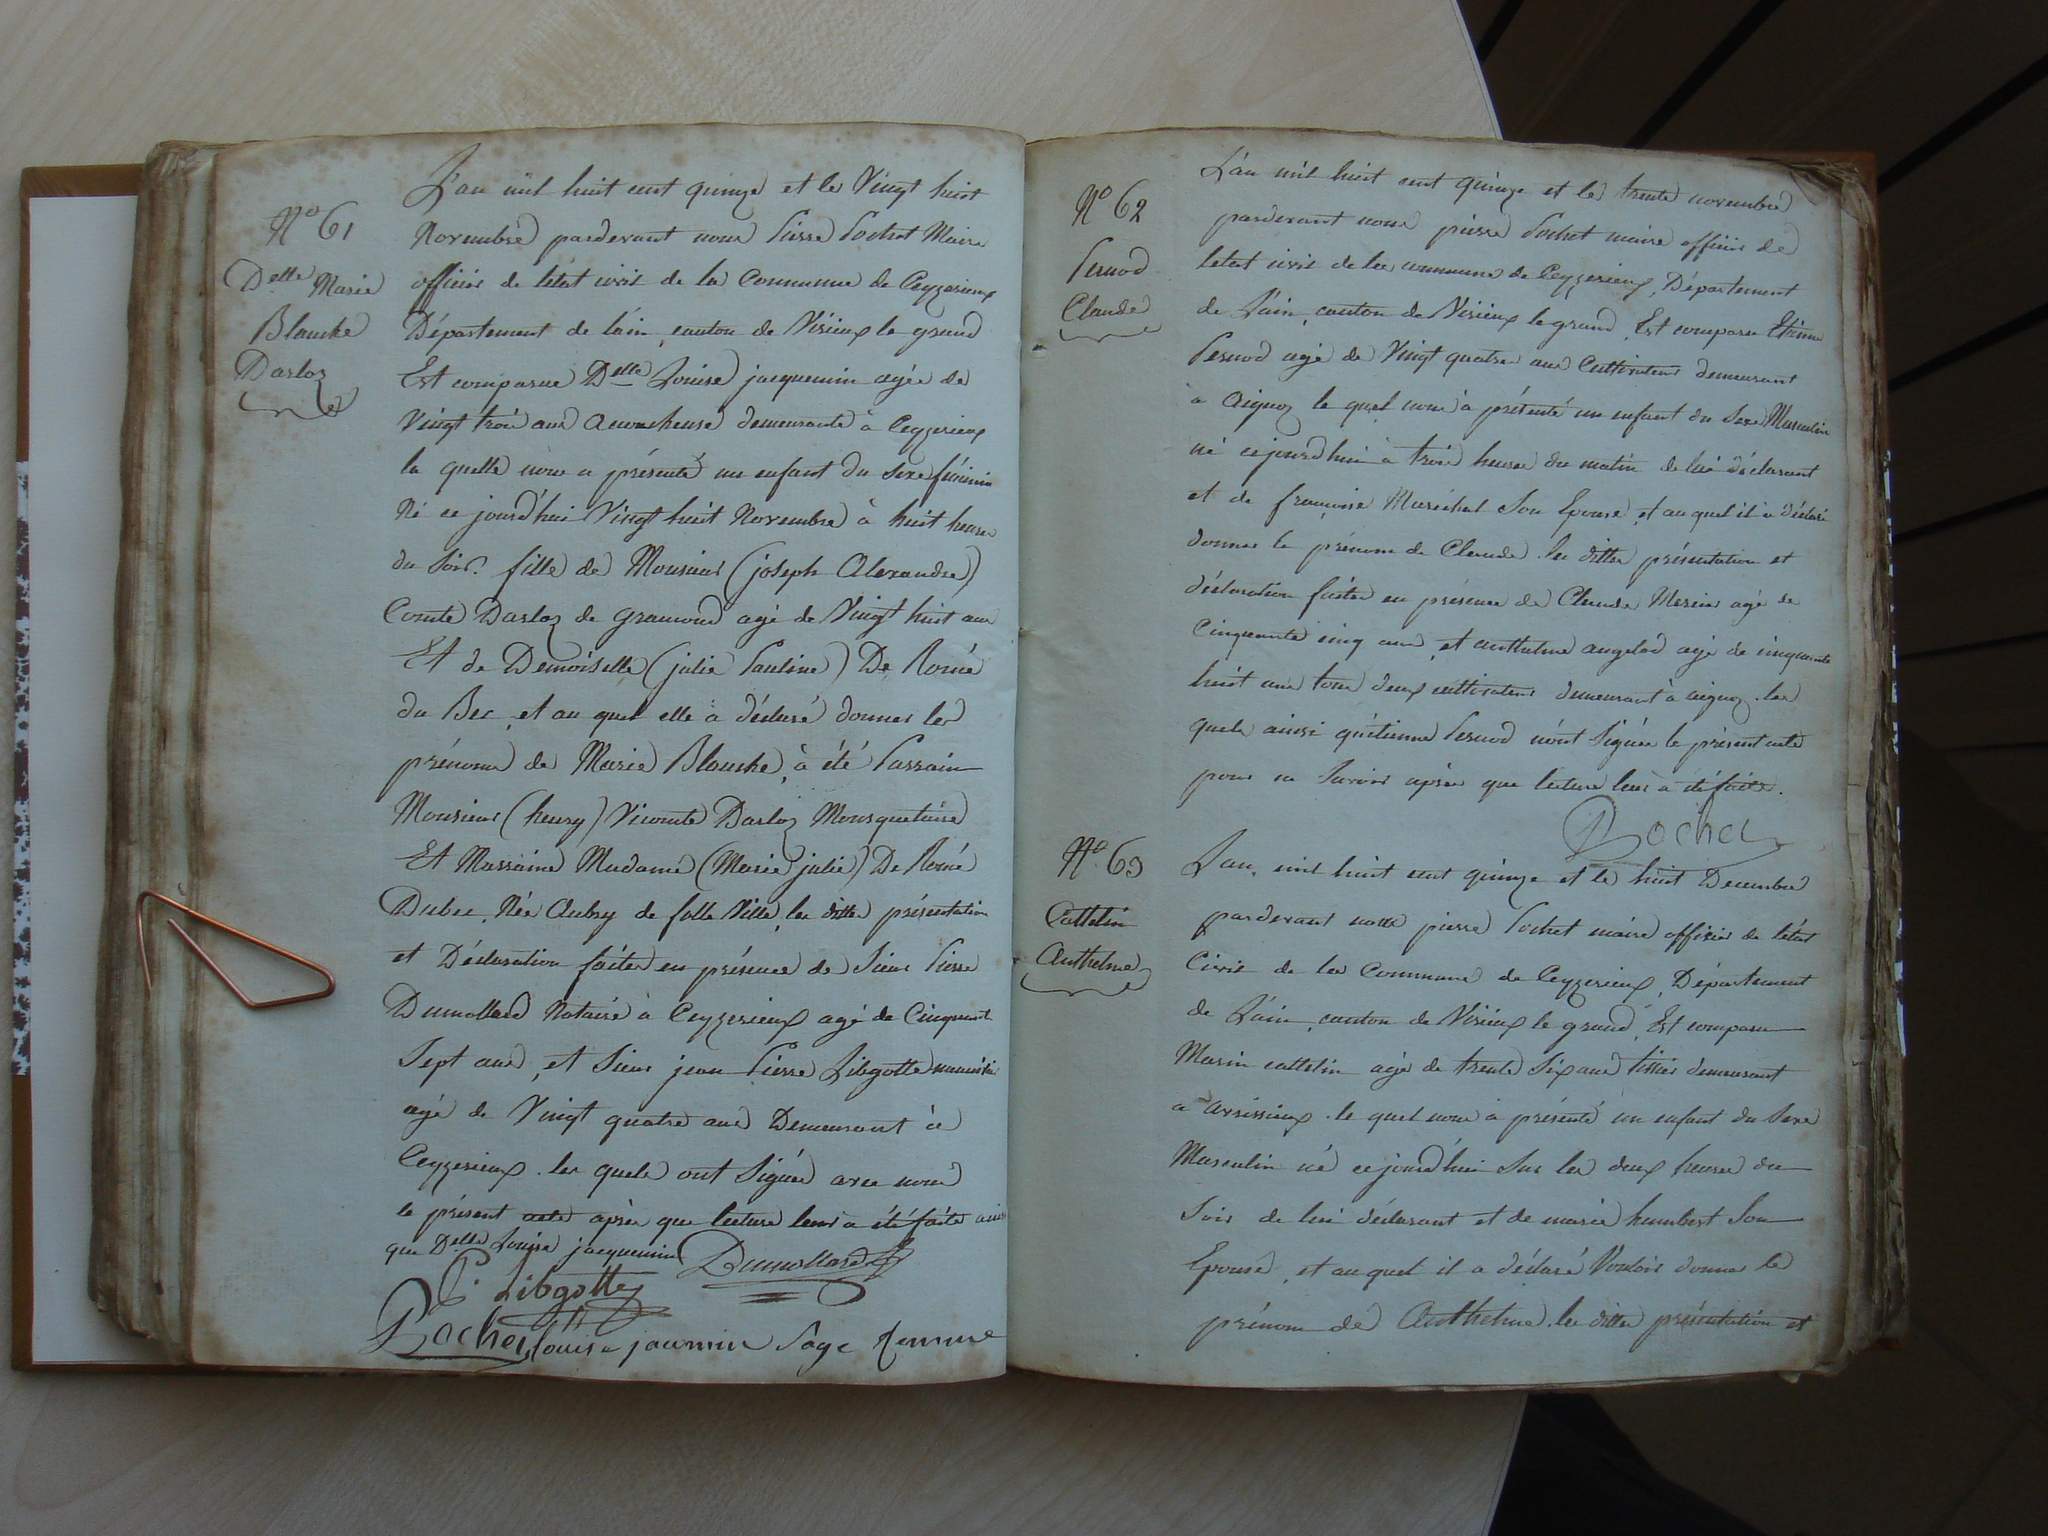 N° 61
Delle Marie
Blanche
Darloz
L'an mil huit cent quinze et le Vingt huit
Novembre pardevant nous Pierre Pochet Maire
officier de létat civil de la Commune de Ceyzerieux
Département de l'ain, canton de Virieux le grand
Est comparue Delle Louise jacquemin agée de
Vingt trois ans accoucheuse demeurante à Ceyzerieux
la quelle nous a présenté un enfant du sexe féminin
Né ce jourd'hui Vingt huit Novembre à huit heures
du soir. fille de Monsieur (joseph Alexandre)
Comte Darloz de gramond agé de Vingt huit ans
Et de Demoiselle (julie Pauline) De
du Bec, et au quel elle à déclaré donner les
prénoms de Marie Blanche, à été Parrain
Monsieur (henry) Vicomte Darloz Mousquetaire
Et Marraine Madame (Marie julie) De
Dubec, Née Aubry de folle Ville, les dittes présentation
et Déclaration faites en présence de Sieur Pierre
Dumollard Notaire à Ceyzerieux agé de Cinquante
Sept ans, et Sieur jean Pierre Libgotte
agé de Vingt quatre ans Demeurant à
Ceyzerieux. les quels ont Signés avec nous
le présent acte après que lecture leur a été faite ainsi
que Delle Louise jacquemin Dumollard
P. Libgotte
Pochet louise jacmin sage femme
N° 62
Pernod
Claude
L'an mil huit cent quinze et le trente novembre
pardevant nous pierre Pochet maire officier de
letat civil de la commune de Ceyzerieux, Département
de l'ain, canton de Virieux le grand, Est comparu Etienne
Pernod agé de Vingt quatre ans Cultivateur demeurant
a Aignoz le quel nous à présenté un enfant du Sexe Masculin
né cejourdhui à trois heures du matin de lui déclarant
et de françoise Maréchal Son Epouse, et au quel il a déclaré
donner le prénom de Claude. les dittes présentation et
déclaration faites en présence de Claude Mercier agé de
Cinquante cinq ans, et anthelme angelod agé de cinquante
huit ans tous deux cultivateurs demeurant à aignoz. les
quels ainsi qu'étienne Pernod n'ont Signés le présent acte
pour ne Savoir après que lecture leur à été faite.
Pochet
N° 63
Cattelin
Anthelme
L'an, mil huit cent quinze et le huit Decembre
pardevant nous pierre Pochet maire officier de létat
Civil de la Commune de Ceyzerieux, Département
de L'ain, canton de Virieux le grand, Est comparu
Marin cattelin agé de trente Six ans tissier demeurant
a avrissieux. le quel nous à présenté un enfant du Sexe
Masculin né cejourd'hui Sur les deux heures du
Soir de lui déclarant et de marie humbert Son
Epouse, et au quel il a déclaré Vouloir donner le
prénom de Anthelme. les dittes présentation et